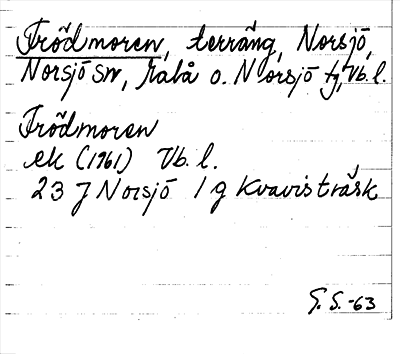 Frödmoren, terräng, Norsjö,
Norsjö sn, Malå o. Norsjö tg, Vb. l.
Frödmoren
ek (1961) Vb. l.
23 J Norsjö 1 g Kvavisträsk
S. S. -63